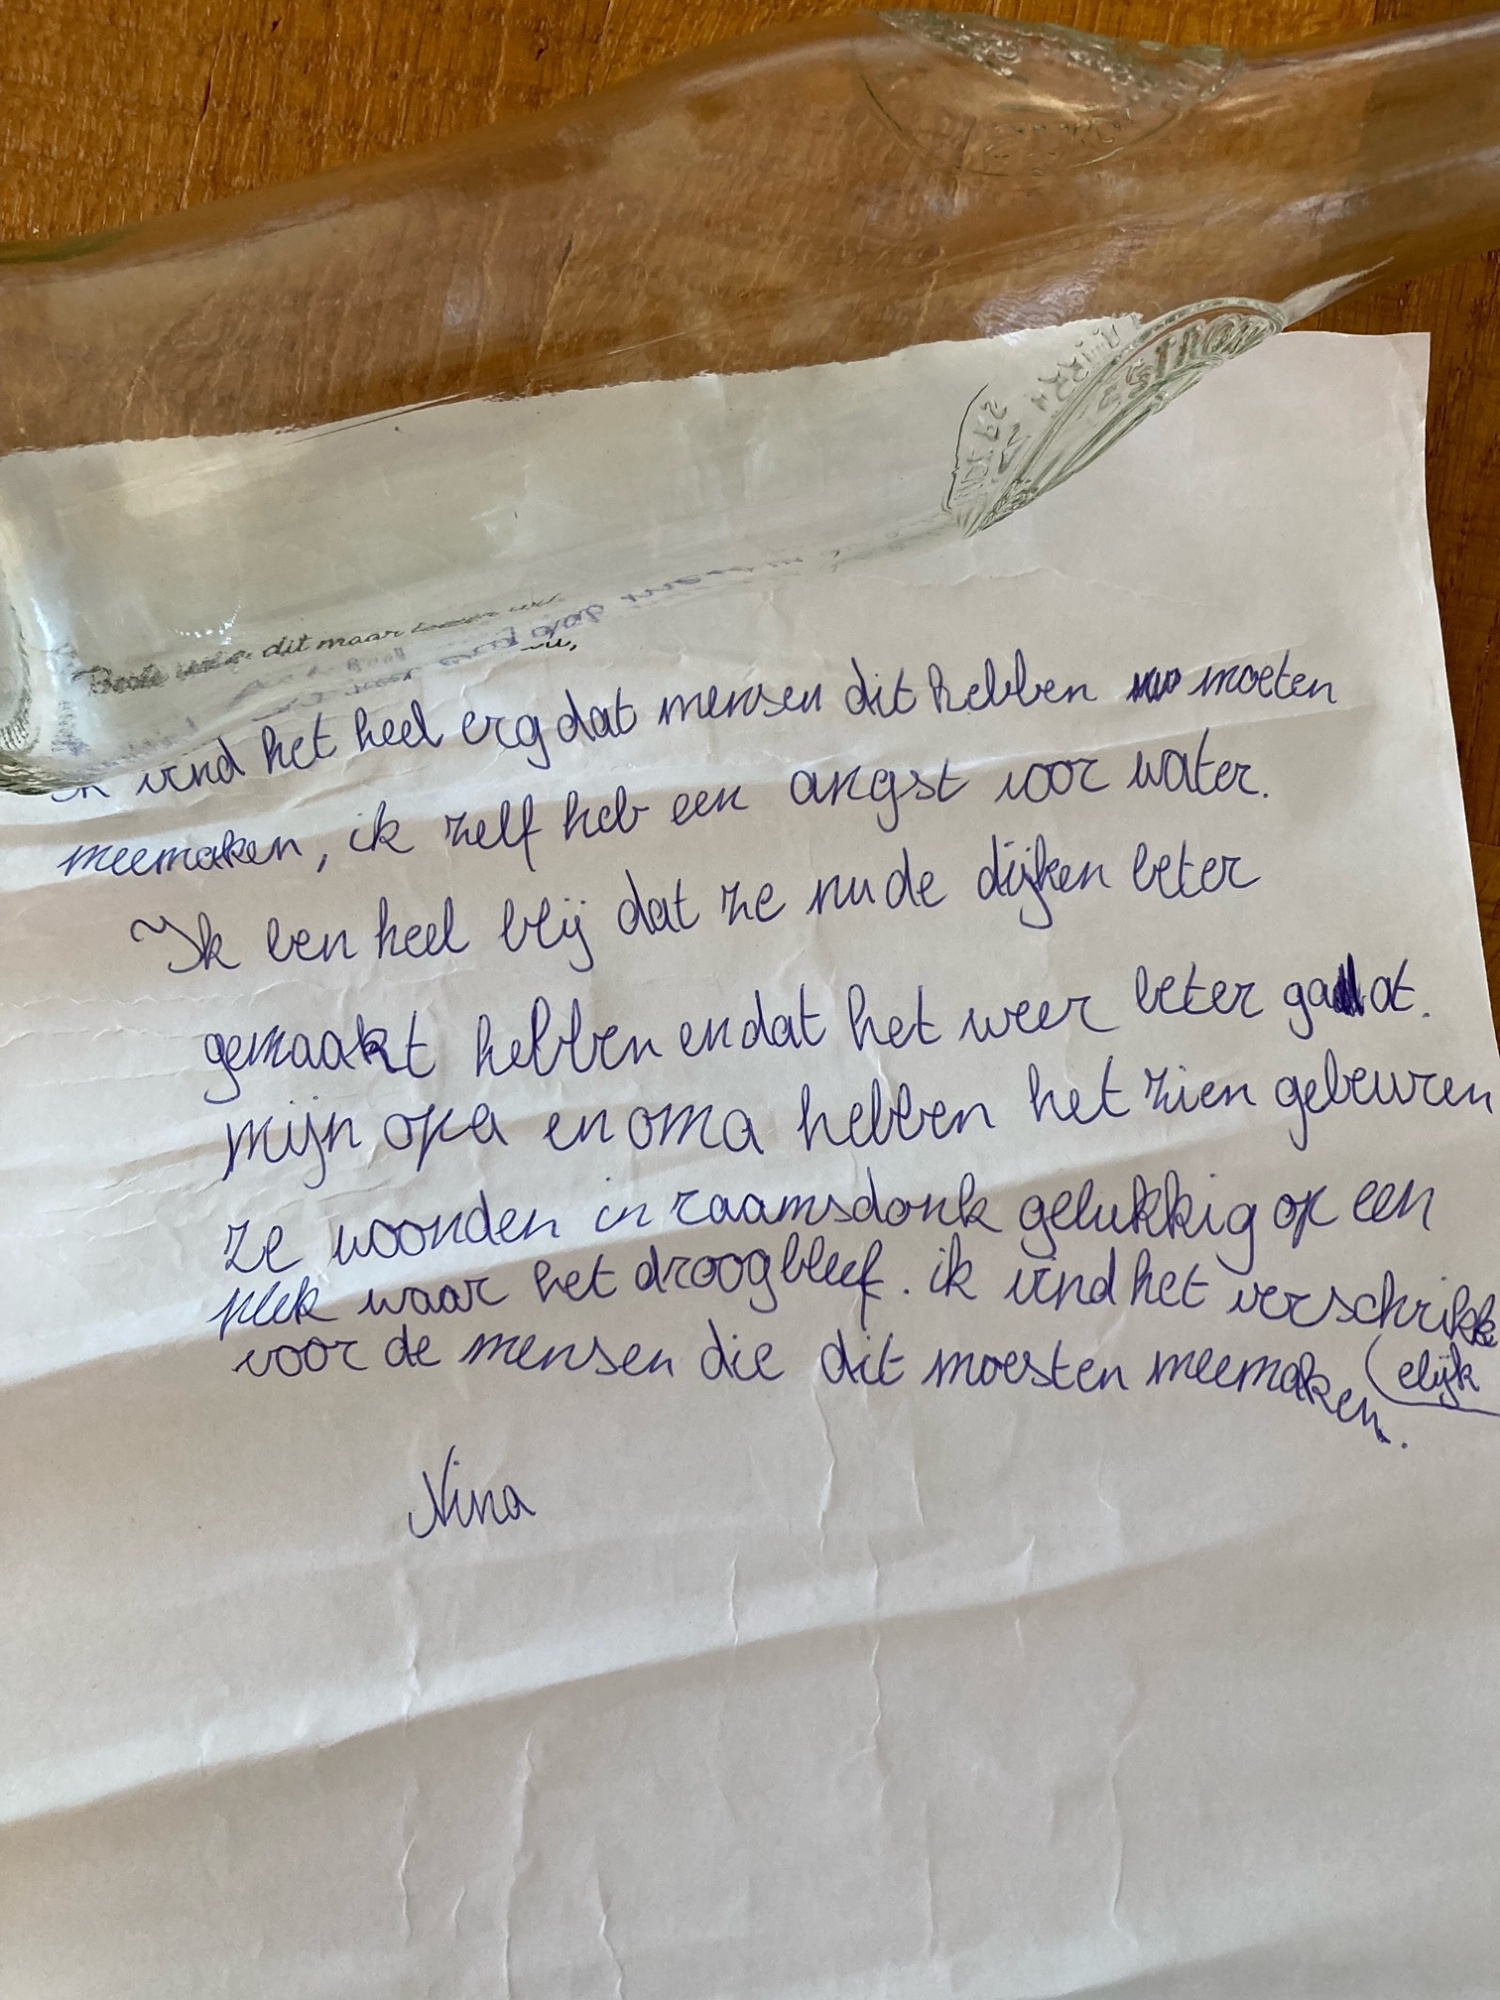 dit maar
Ik vind het heel erg dat mensen dit hebben moeten
meemaken, ik zelf heb een angst voor water.
Ik ben heel blij dat ze nu de dijken beter
gemaakt hebben en dat het weer beter gaat.
mijn opa en oma hebben het zien gebeuren
ze woonden in raamsdonk gelukkig op een
plek waar het droog bleef. ik vind het verschrikk
voor de mensen die dit moesten meemaken. (elijk
Nina